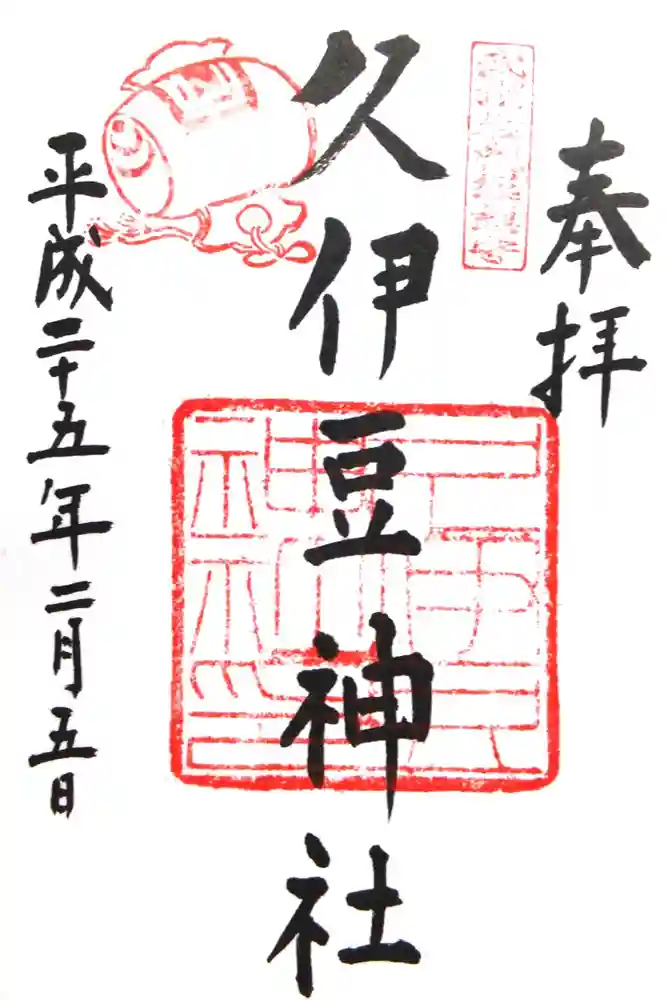 奉拝
久伊豆神社
平成二十五年二月五日